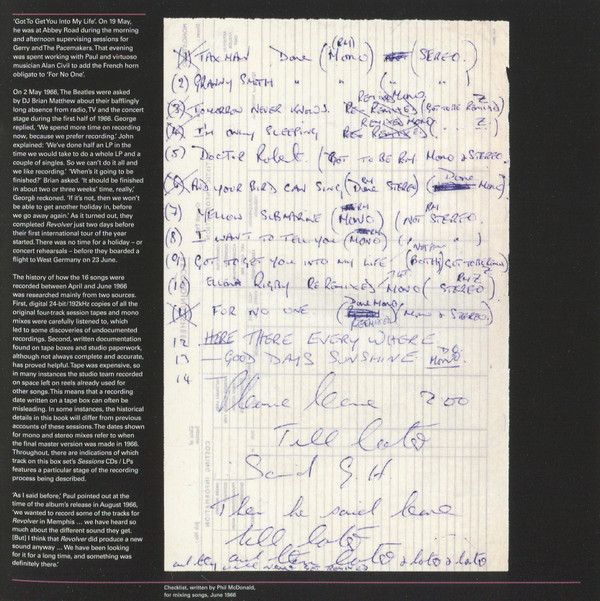 'Got To Get You Into My Life'. On 19 May,
he was at Abbey Road during the morning
and afternoon supervising sessions for
Gerry and The Pacemakers. That evening
was spent working with Paul and virtuoso
musician Alan Civil to add the French horn
obligato to 'For No One'.
On 2 May 1966, The Beatles were asked
by DJ Brian Matthew about their bafflingly
long absence from radio, TV and the concert
stage during the first half of 1966. George
replied, 'We spend more time on recording
now, because we prefer recording.' John
explained: 'We've done half an LP in the
time we would take to do a whole LP and a
couple of singles. So we can't do it all and
we like recording.' 'When's it going to be
finished?' Brian asked. 'It should be finished
in about two or three weeks' time, really,'
George reckoned. 'If it's not, then we won't
be able to get another holiday in, before
we go away again.' As it turned out, they
completed Revolver just two days before
their first international tour of the year
started. There was no time for a holiday – or
concert rehearsals – before they boarded a
flight to West Germany on 23 June.
The history of how the 16 songs were
recorded between April and June 1966
was researched mainly from two sources.
First, digital 24-bit/192kHz copies of all the
original four-track session tapes and mono
mixes were carefully listened to, which
led to some discoveries of undocumented
recordings. Second, written documentation
found on tape boxes and studio paperwork,
although not always complete and accurate,
has proved helpful. Tape was expensive, so
in many instances the studio team recorded
on space left on reels already used for
other songs. This means that a recording
date written on a tape box can often be
misleading. In some instances, the historical
details in this book will differ from previous
accounts of these sessions. The dates shown
for mono and stereo mixes refer to when
the final master version was made in 1966.
Throughout, there are indications of which
track on this box set's Sessions CDs / LPs
features a particular stage of the recording
process being described.
'As I said before,' Paul pointed out at the
time of the album's release in August 1966,
'we wanted to record some of the tracks for
Revolver in Memphis ... we have heard so
much about the different sound they get.
[But] I think that Revolver did produce a new
sound anyway ... We have been looking
for it for a long time, and something was
definitely there.'
(1) TAX MAN Done (RM MONO) (STEREO)
(2) GRANNY SMITH " (" ) (" )
(3) TOMORROW NEVER KNOWS. REMIX MONO. (GOT TO BE REMIXED)
(4) I'M ONLY SLEEPING REMIXED MONO (" )
(5) DOCTOR ROBERT. (GOT TO BE RM MONO & STEREO
(6) AND YOUR BIRD CAN SING (RM Done STEREO) (Done MONO)
(7) YELLOW SUBMARINE (RM MONO) (RM NOT STEREO
(8) I WANT TO TELL YOU (RM MONO) (" " )
(9) GOT TO GET YOU INTO MY LIFE (BOTH GOT TO BE REMIXED)
(10) ELLONA RIGBY RE REMIXED MONO (STEREO)
(11) FOR NO ONE (Done Mono REMIXED) MONO & STEREO)
12 HERE THERE EVERY WHERE
13 – GOOD DAYS SUNSHINE MONO
14
Please leave 200
Till later
Said G H
Then he said leave
till later
and later later & later & later
Checklist, written by Phil McDonald,
for mixing songs, June 1966